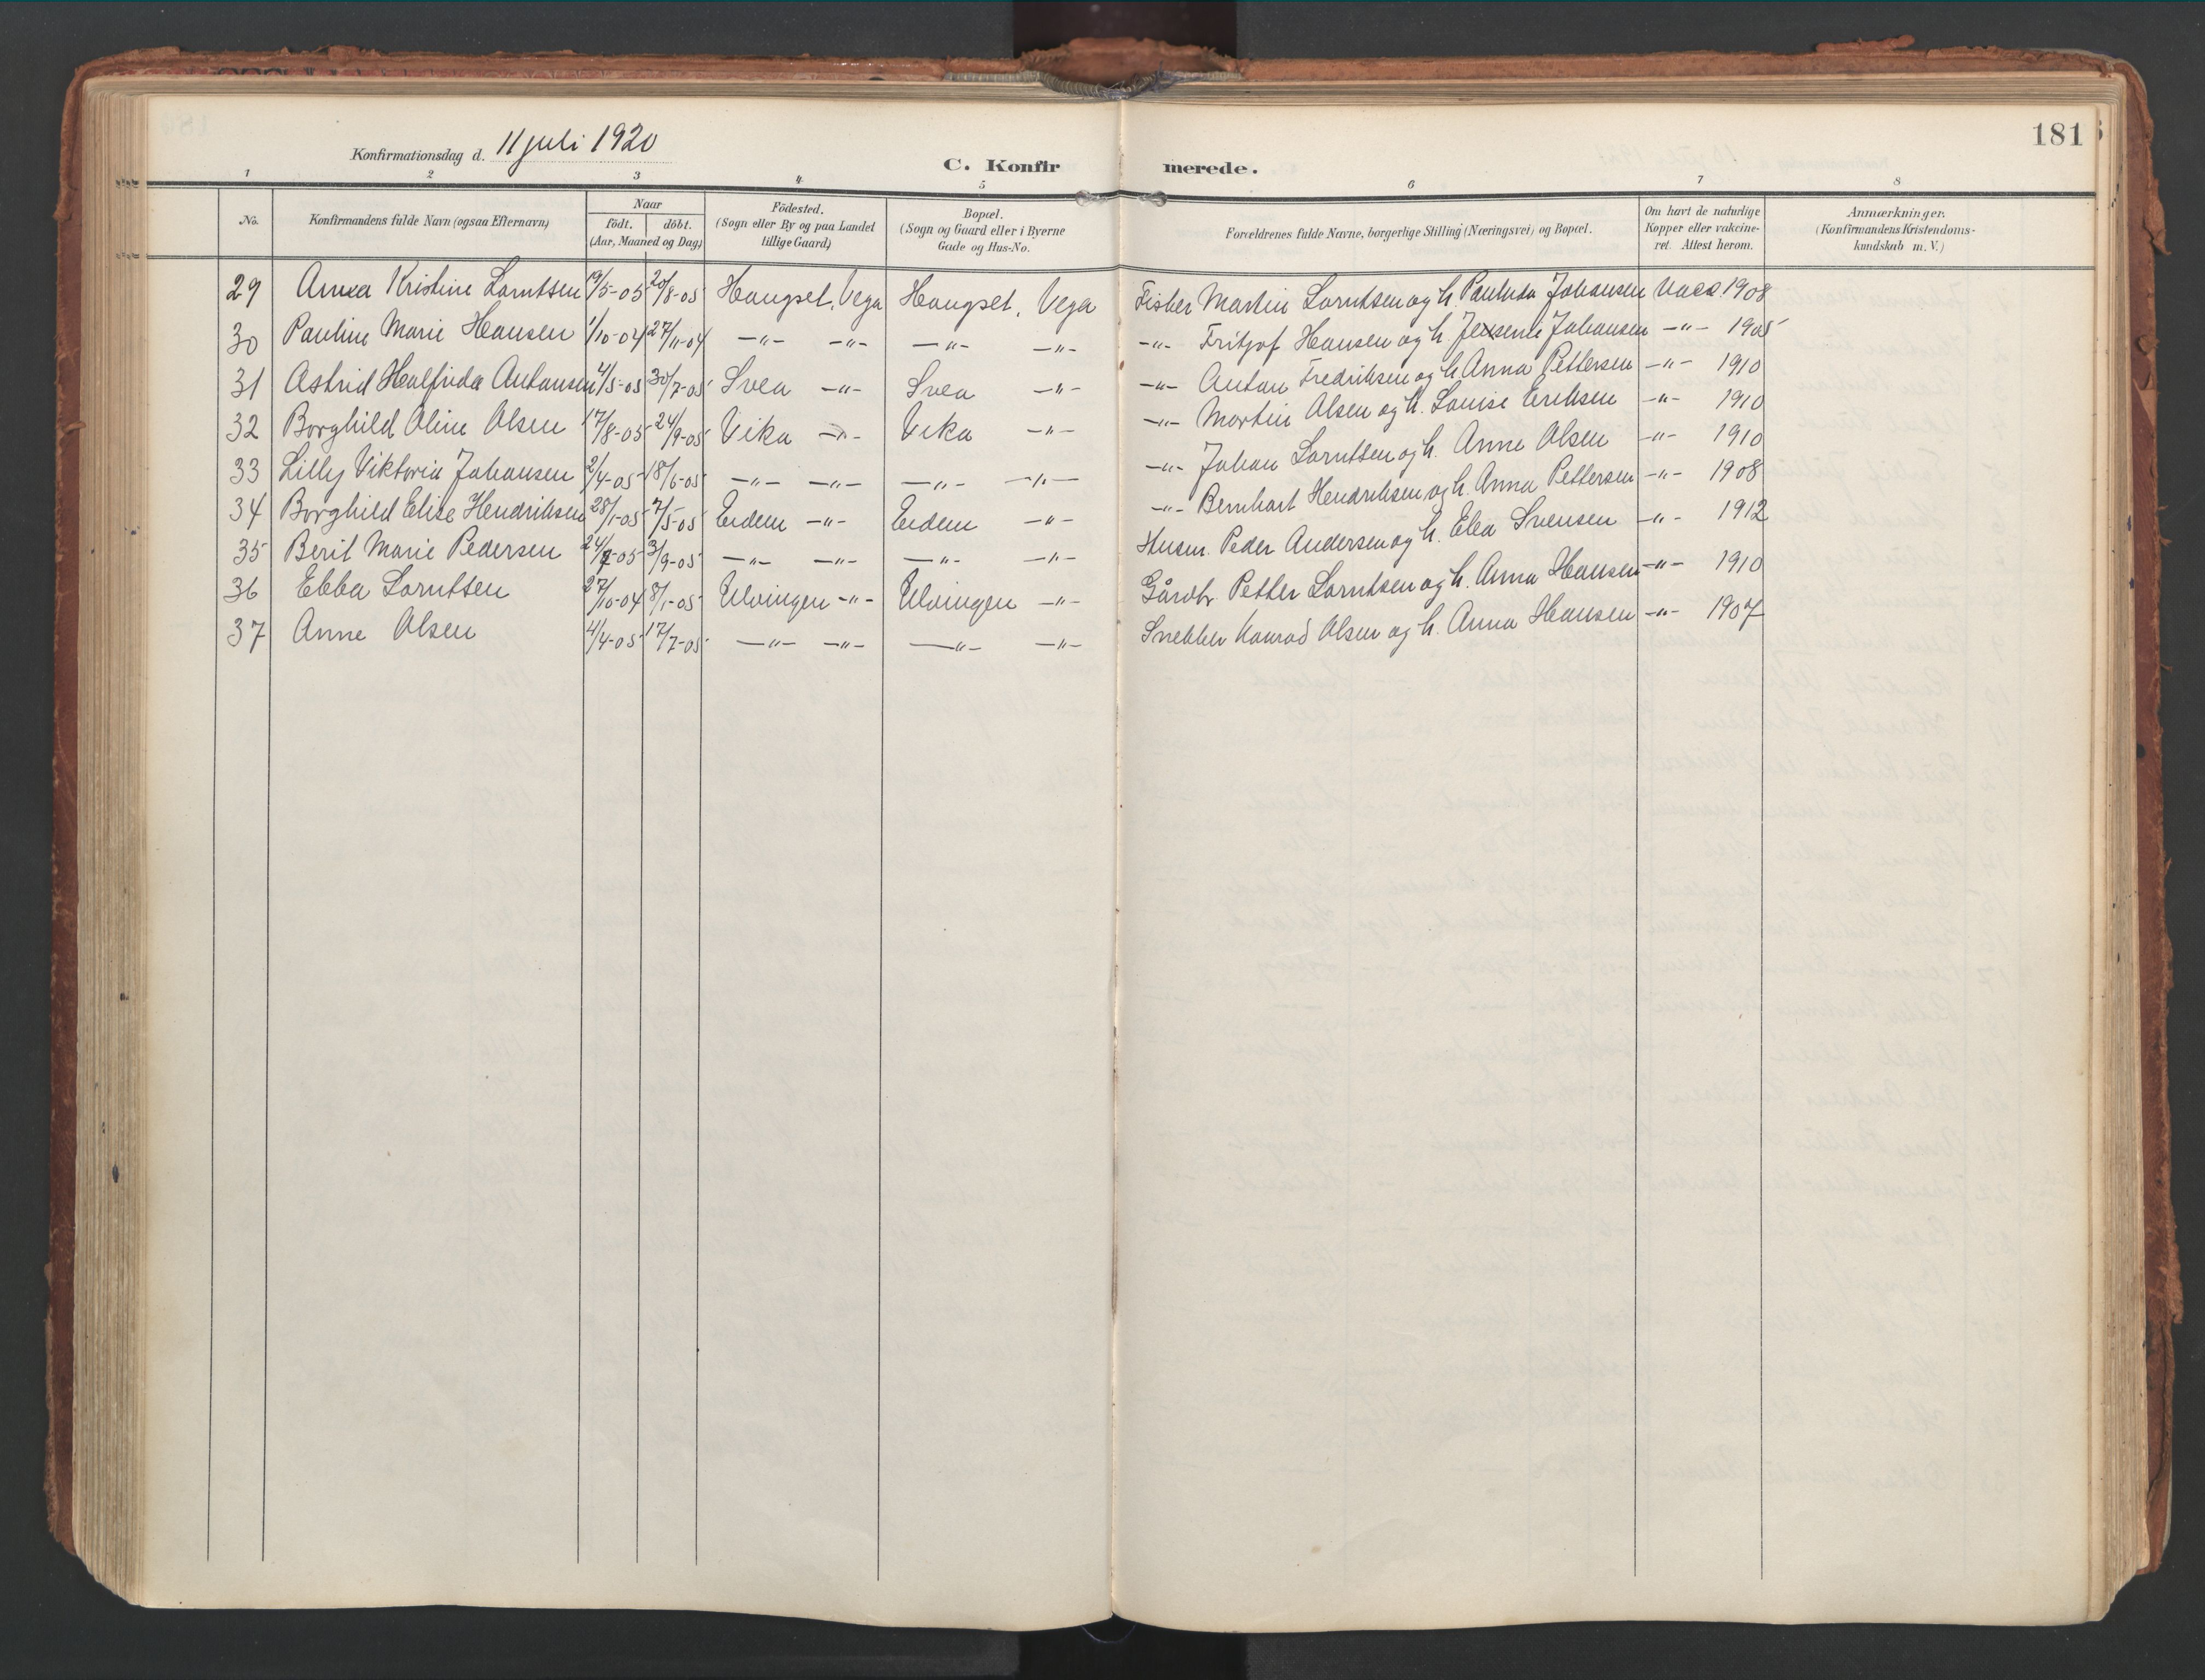 Konfirmationsdag d. 11 juli 1920
181
C. Konfirmerede.
1 2 3 4 5 6 7 8
No. | Konfirmandens fulde Navn (ogsaa Efternavn) | Naar födt. döbt. (Aar, Maaned og Dag) | Födested. (Sogn eller By og paa Landet tillige Gaard) | Bopæl. (Sogn og Gaard eller i Byerne Gade og Hus-No. | Forældrenes fulde Navne, borgerlige Stilling (Næringsvei) og Bopæl. | Om havt de naturlige Kopper eller vakcineret. Attest herom. | Anmærkninger. (Konfirmandens Kristendomskundskab m. V.)
29 Anna Kristine Lorntsen 19/5-05 20/8-05 Haugset, Vega Haugset, Vega Fisker Martin Lorntsen og h. Paulida Johansen vacc. 1908
30 Pauline Marie Hansen 1/10-04 27/11-04 -"- -"- -"- -"- -"- Fritjof Hansen og h. Jensine Johansen -"- 1905
31 Astrid Halfrida Antonsen 4/5-05 30/7-05 Svea -"- Svea -"- -"- Anton Fredriksen og h. Anna Pettersen -"- 1910
32 Borghild Oline Olsen 17/8-05 24/9-05 Vika -"- Vika -"- -"- Martin Olsen og h. Louise Eriksen -"- 1910
33 Lilly Viktoria Johansen 2/4-05 18/6-05 -"- -"- -"- -"- -"- Johan Lorntsen og h. Anne Olsen -"- 1910
34 Borghild Elise Hendriksen 28/1-05 7/5-05 Eidem -"- Eidem -"- -"- Bernhart Hendriksen og h. Anna Pettersen -"- 1908
35 Berit Marie Pedersen 24/7-05 3/9-05 -"- -"- -"- -"- Husm. Peder Andersen og h. Elea Svensen -"- 1912
36 Ebba Lorntsen 27/10-04 8/1-05 Ulvingen -"- Ulvingen -"- Gårdbr. Petter Lorntsen og h. Anna Hansen -"- 1910
37 Anne Olsen 4/4-05 17/7-05 -"- -"- -"- -"- Snekker Konrad Olsen og h. Anna Hansen -"- 1907